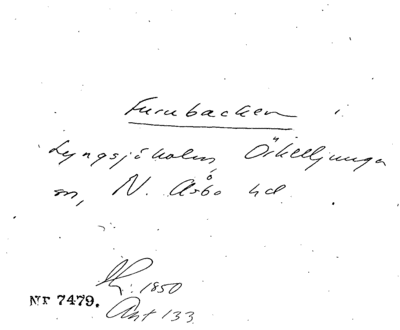 Furubacken i
Lyngsjöholm, Örkelljunga
sn, N. Åsbo hd
Sk: 1850
Nr 7479.
Ant 133